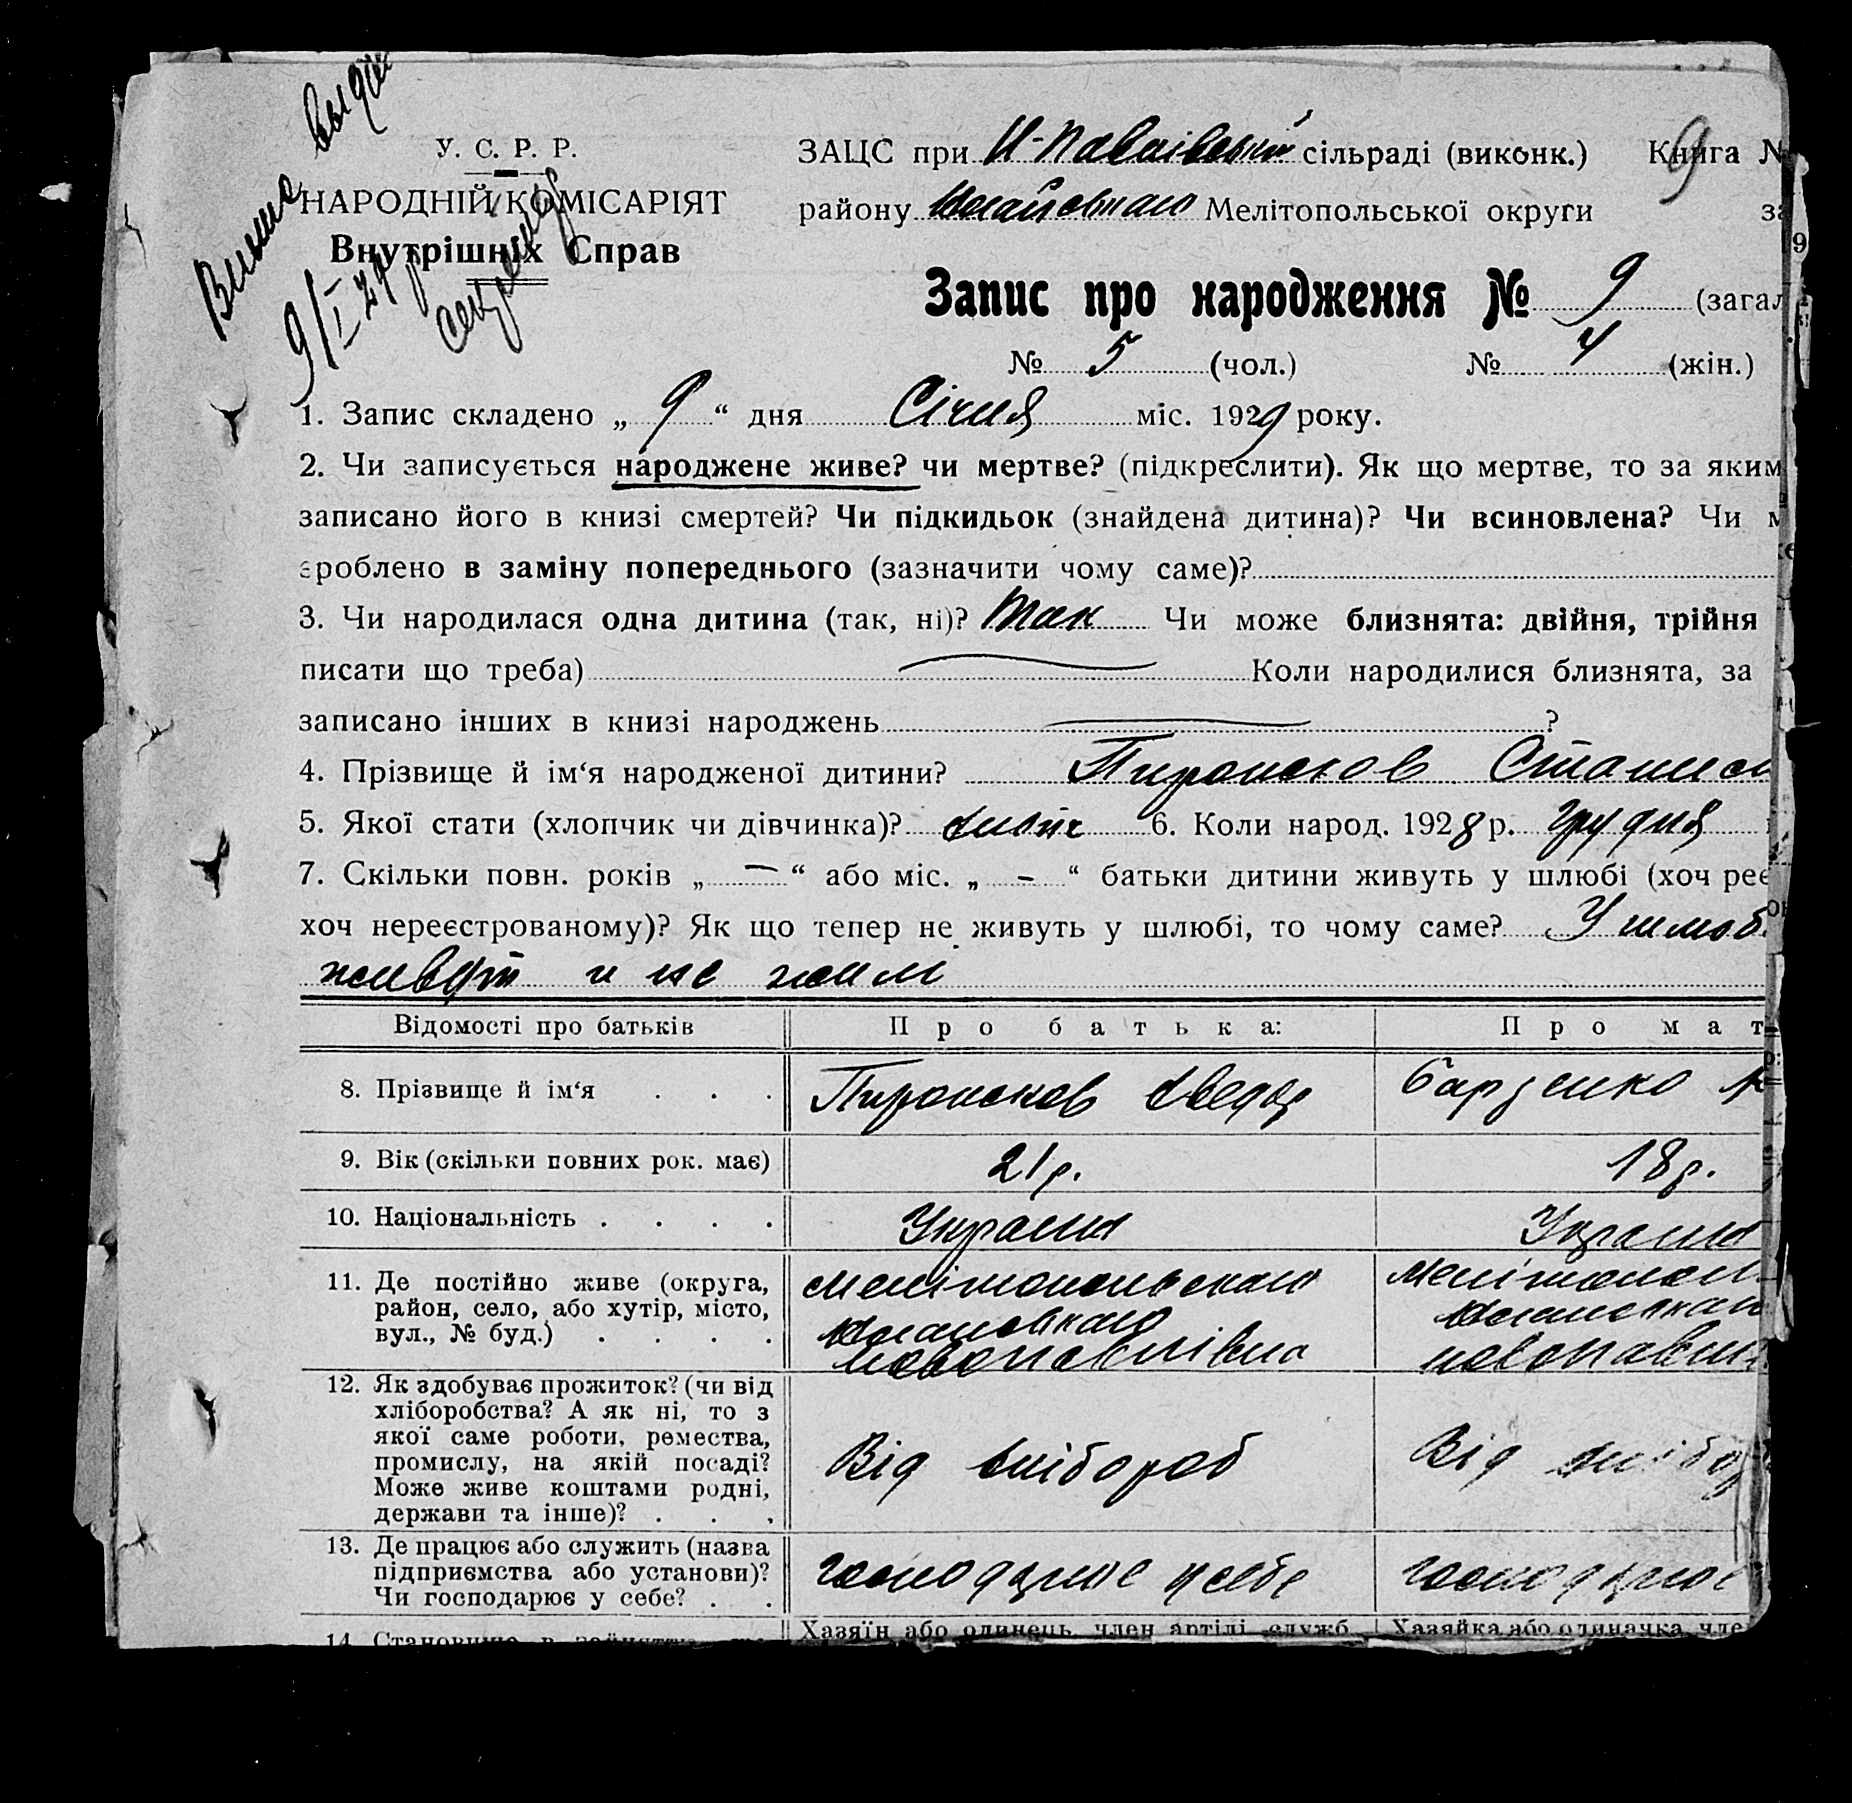 Випис видан
9/I 29 р.
У. С. Р. Р.
НАРОДНІЙ КОМІСАРІЯТ
Внутрішніх Справ
ЗАЦС при Н-Павлівський сільраді (виконк.) Книга № 9
району Мелітопольської округи за
Запис про народження № 9 (загал
№ 5 (чол.) № 4 (жін.)
1. Запис складено „ 9 “ дня Січня міс. 1929 року.
2. Чи записується народжене живе? чи мертве? (підкреслити). Як що мертве, то за яким
записано його в книзі смертей? Чи підкидьок (знайдена дитина)? Чи всиновлена? Чи
зроблено в заміну попереднього (зазначити чому саме)?
3. Чи народилася одна дитина (так, ні)? Так Чи може близнята: двійня, трійня
писати що треба) Коли народилися близнята, за
записано інших в книзі народжень ?
4. Прізвище й ім‘я народженої дитини?
5. Якої стати (хлопчик чи дівчинка)? хлопч 6. Коли народ. 1928 р. грудня
7. Скільки повн. років „ — “ або міс. „ - “ батьки дитини живуть у шлюбі (хоч реє
хоч нереєстрованому)? Як що тепер не живуть у шлюбі, то чому саме? У шлюб
живут и не жили
Відомості про батьків Про батька: Про мат
8. Прізвище й ім‘я . . .
9. Вік (скільки повних рок. має) 21 р. 18 р.
10. Національність . . . . Украин Украин
11. Де постійно живе (округа, Мелітопольскаго Мелітопол
район, село, або хутір, місто,
вул., № буд.) . . . . Новопавлівка новопавл
12. Як здобуває прожиток? (чи від
хліборобства? А як ні, то з
якої саме роботи, ремества,
промислу, на якій посаді? Від хлібороб Від хлібор
Може живе коштами родні,
держави та інше)? . . .
13. Де працює або служить (назва
підприємства або установи)? господарює у себе господарює
Чи господарює у себе? . .
14. Становище в занятті
Хазяїн або одинець, член артілі, служб. Хазяйка або одиначка, чле